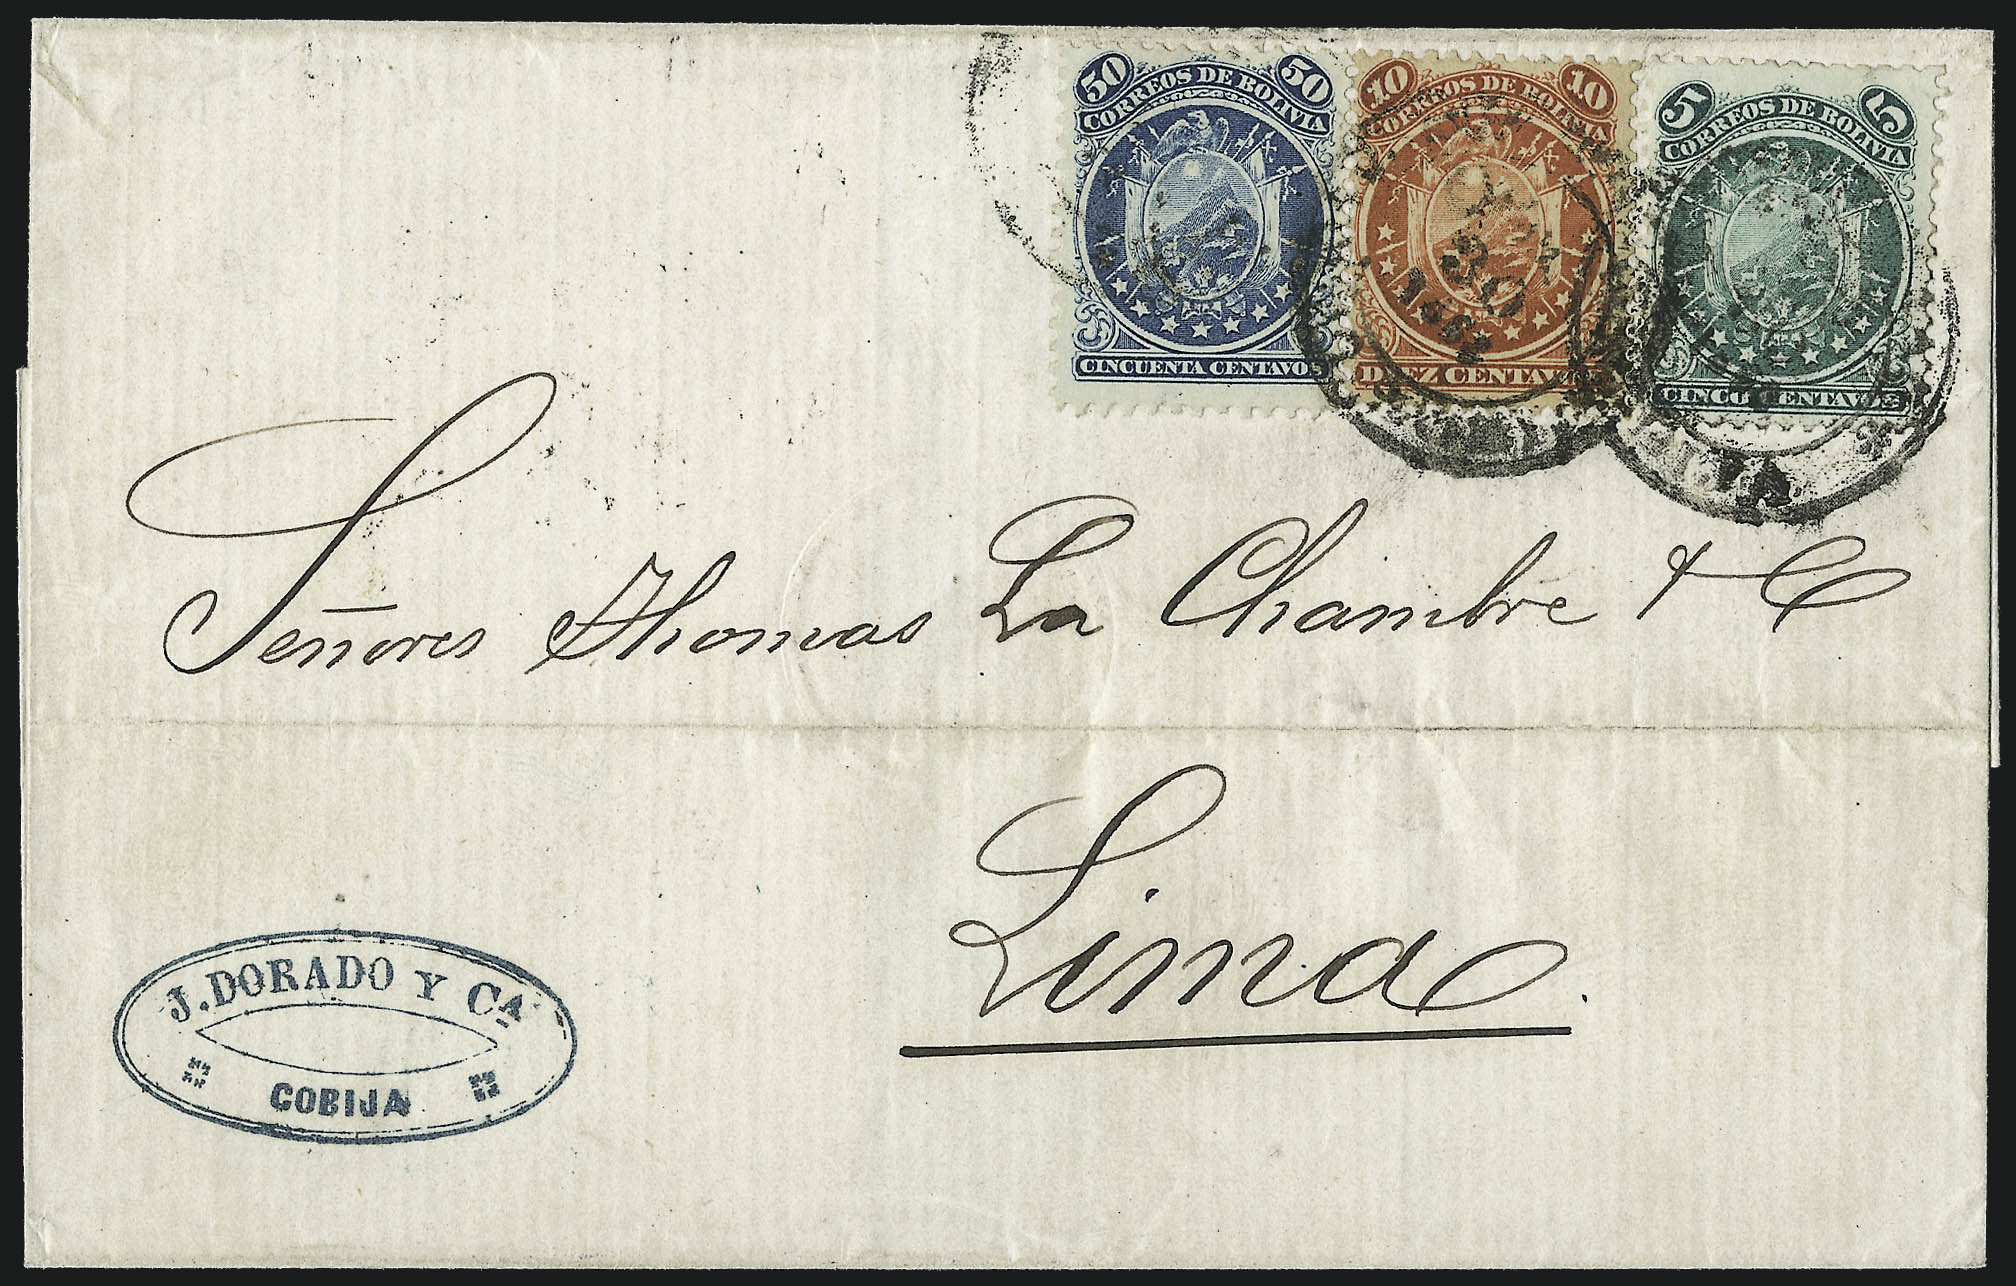 50 CORREOS DE BOLIVIA 50
CINCUENTA CENTAVOS
10 CORREOS DE BOLIVIA 10
DIEZ CENTAVOS
5 CORREOS DE BOLIVIA 5
CINCO CENTAVOS
Señores Thomas La Chambre & C
Lima.
J. DORADO Y CA.
COBIJA